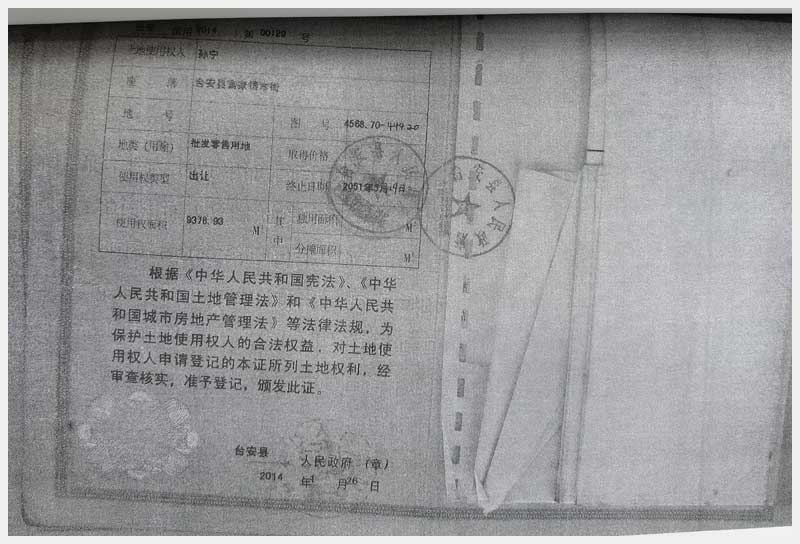 国用 2014 第 00120 号
土地使用权人 孙宁
座 落 台安县
地 号 图 号 4568.70-449.20
地类（用途） 批发零售用地 取得价格
使用权类型 出让 终止日期 2051年3月19日
使用权面积 9378.93 M² 其中 独用面积 M²
分摊面积 M²
根据《中华人民共和国宪法》、《中华
人民共和国土地管理法》和《中华人民共
和国城市房地产管理法》等法律法规，为
保护土地使用权人的合法权益，对土地使
用权人申请登记的本证所列土地权利，经
审查核实，准予登记，颁发此证。
台安县 人民政府 （章）
2014 年1 月26 日